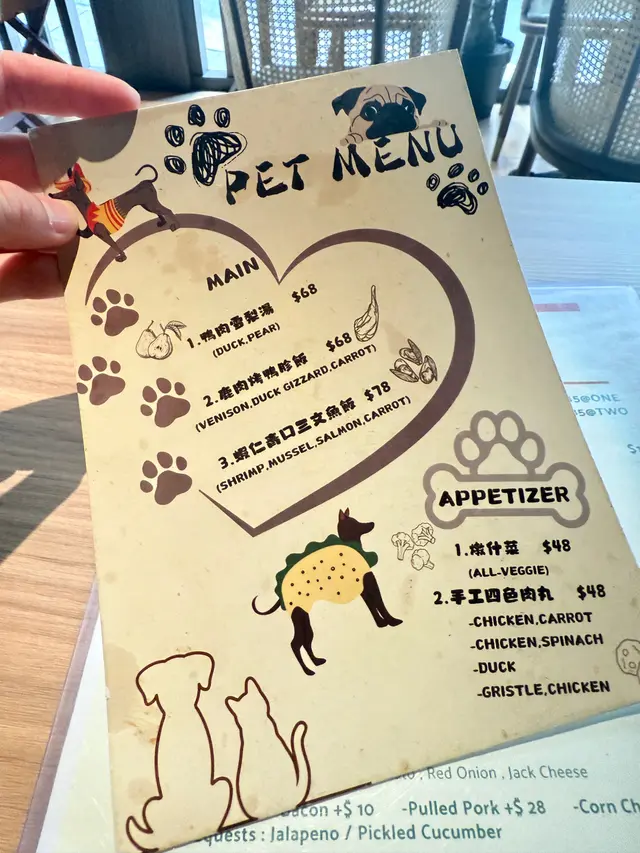 PET MENU
MAIN
1.鴨肉雪梨湯 $68
(DUCK,PEAR)
2.鹿肉烤鴨胗飯 $68
(VENISON,DUCK GIZZARD,CARROT)
3.蝦仁青口三文魚飯 $78
(SHRIMP,MUSSEL,SALMON,CARROT)
APPETIZER
1.燉什菜 $48
(ALL-VEGGIE)
2.手工四色肉丸 $48
-CHICKEN,CARROT
-CHICKEN,SPINACH
-DUCK
-GRISTLE,CHICKEN
@ONE
@TWO
, Red Onion , Jack Cheese
+$ 10 -Pulled Pork +$ 28 -Corn
: Jalapeno / Pickled Cucumber